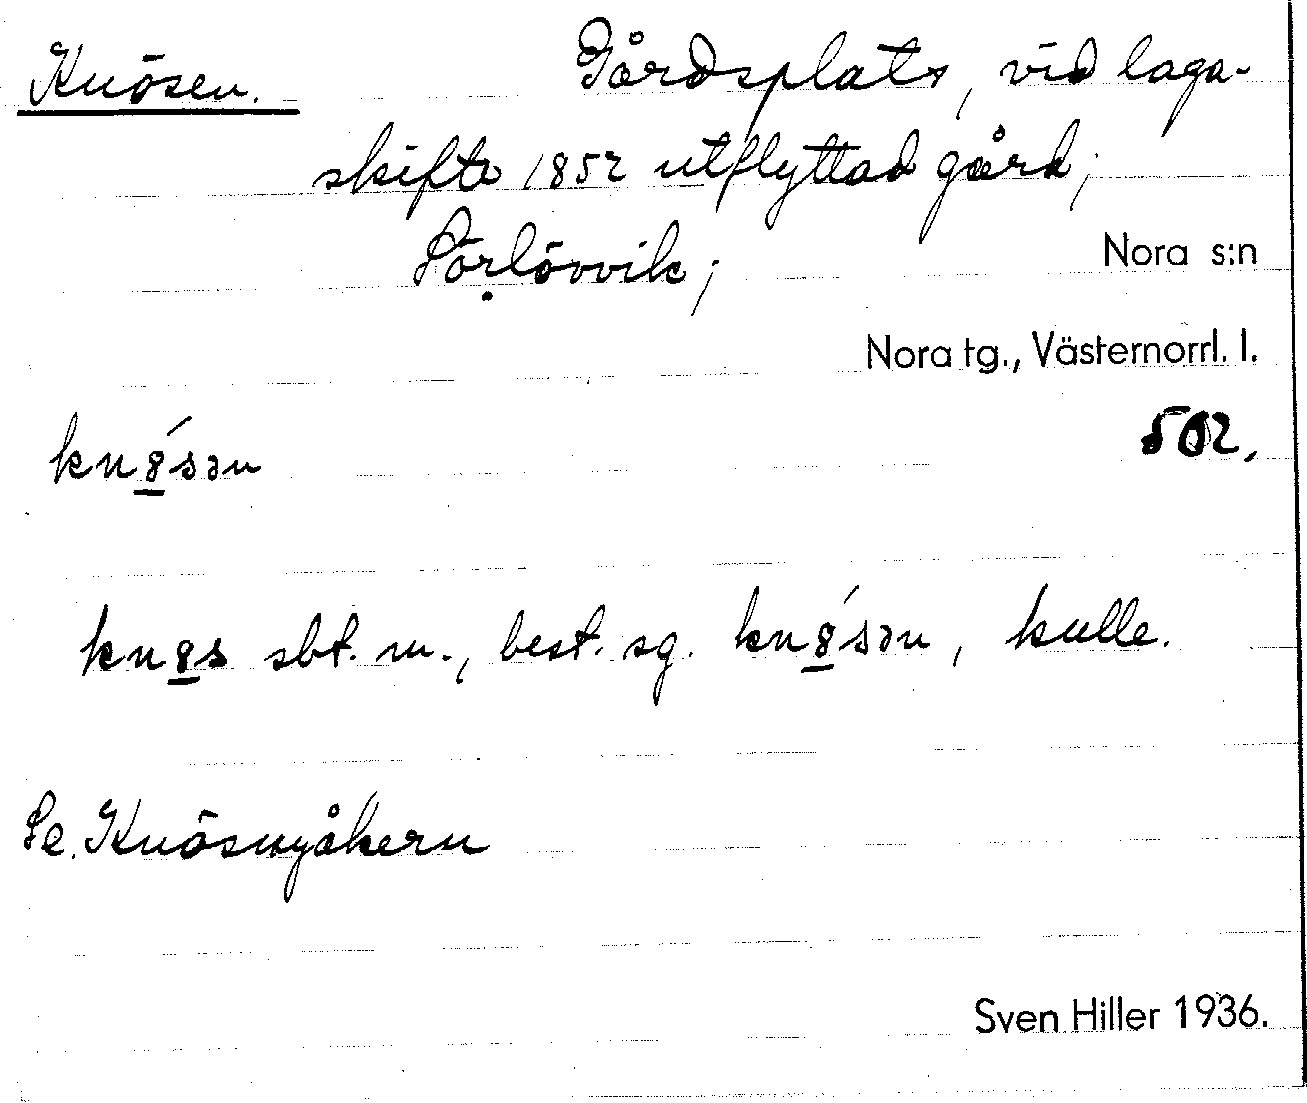 Knösen. Gårdsplats, vid laga-
skifte 1852 utflyttad gård;
Sörlövvik; Nora s:n
Nora tg., Västernorrl. l.
502.
kn8́sən
kn8s sbt. m., best. sg. kn8́sən, kulle.
Se. Knösnyåkern
Sven Hiller 1936.